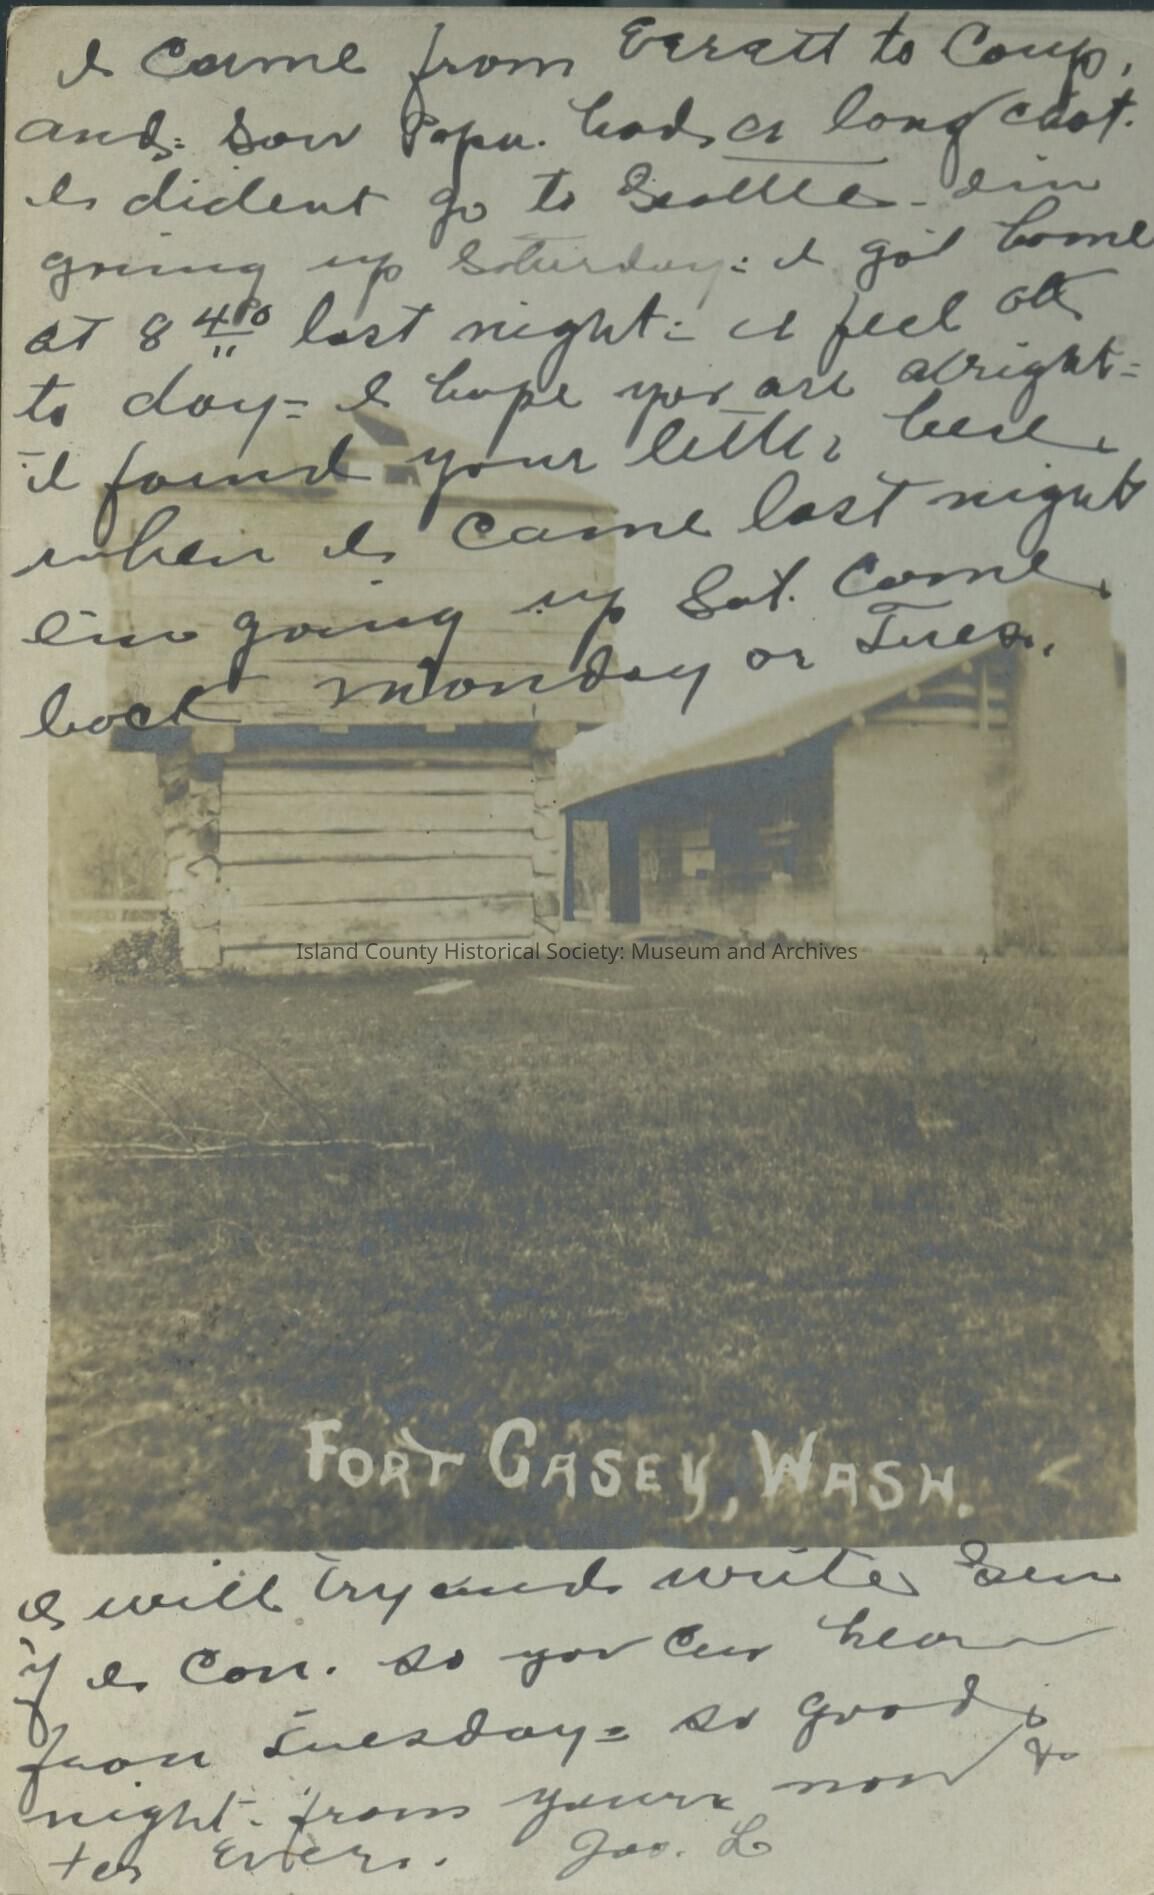 I came from Everatt to Coup,
and saw Papa. had a long chat.
I dident go to Seattle - Im
going up Saturday: I got home
at 8 40 last night: I feel ok
to day = I hope you are alright =
I found your letter here
when I came last night
Im going up Sat. Come
back Monday or Tues.
Island County Historical Society: Museum and Archives
FORT CASEY, WASH.
I will try and write Sun
if I Can. so you Can hear
from Tuesday = so good
night. from yours now &
ter Evers. Jas. L